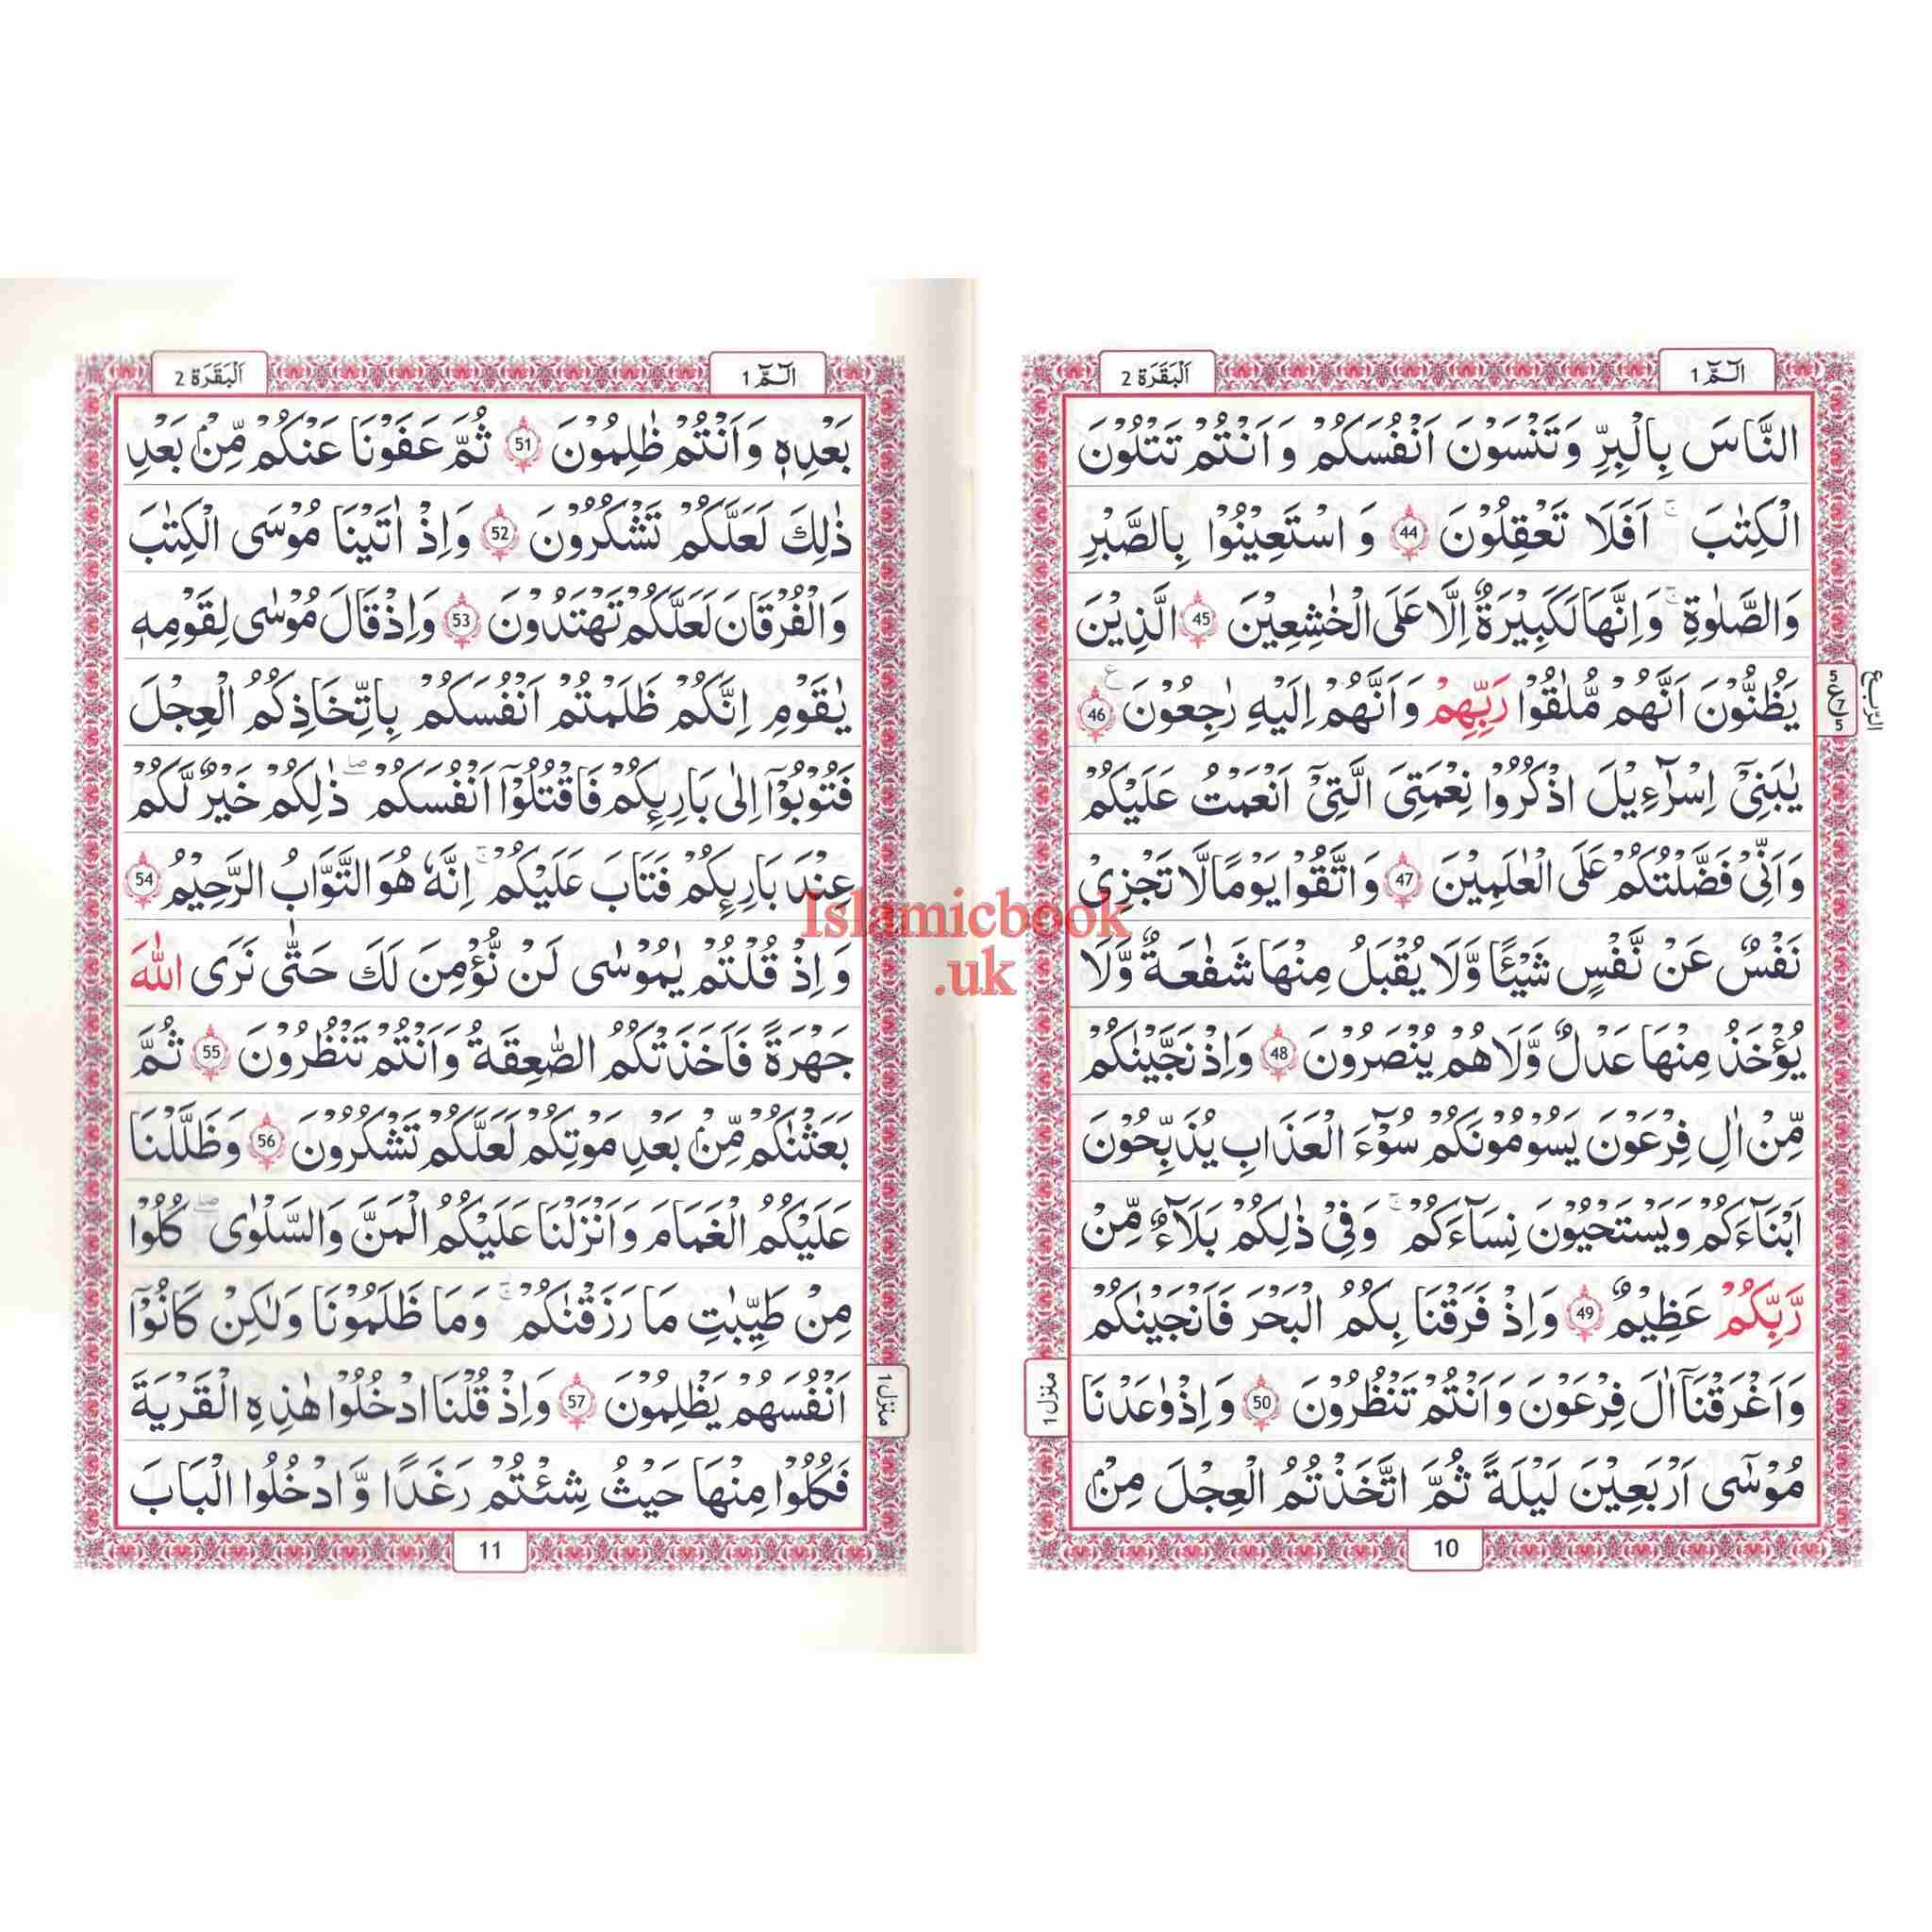 الٓمّٓ 1
اَلْبَقَرَة 2
النَّاسَ بِالْبِرِّ وَتَنْسَوْنَ اَنْفُسَكُمْ وَاَنْتُمْ تَتْلُوْنَ
الْكِتٰبَ ۚ اَفَلَا تَعْقِلُوْنَ 44 وَاسْتَعِيْنُوْا بِالصَّبْرِ
وَالصَّلٰوةِ ۚ وَاِنَّهَا لَكَبِيْرَةٌ اِلَّا عَلَى الْخٰشِعِيْنَ 45 الَّذِيْنَ
يَظُنُّوْنَ اَنَّهُمْ مُّلٰقُوْا رَبِّهِمْ وَاَنَّهُمْ اِلَيْهِ رٰجِعُوْنَ ع 46
الرّبع
5
ع 7
5
يٰبَنِيْٓ اِسْرَآءِيْلَ اذْكُرُوْا نِعْمَتِيَ الَّتِيْٓ اَنْعَمْتُ عَلَيْكُمْ
وَاَنِّيْ فَضَّلْتُكُمْ عَلَى الْعٰلَمِيْنَ 47 وَاتَّقُوْا يَوْمًا لَّا تَجْزِيْ
نَفْسٌ عَنْ نَّفْسٍ شَيْئًا وَّلَا يُقْبَلُ مِنْهَا شَفٰعَةٌ وَّلَا
يُؤْخَذُ مِنْهَا عَدْلٌ وَّلَا هُمْ يُنْصَرُوْنَ 48 وَاِذْ نَجَّيْنٰكُمْ
مِّنْ اٰلِ فِرْعَوْنَ يَسُوْمُوْنَكُمْ سُوْٓءَ الْعَذَابِ يُذَبِّحُوْنَ
اَبْنَآءَكُمْ وَيَسْتَحْيُوْنَ نِسَآءَكُمْ ۚ وَفِيْ ذٰلِكُمْ بَلَآءٌ مِّنْ
رَّبِّكُمْ عَظِيْمٌ 49 وَاِذْ فَرَقْنَا بِكُمُ الْبَحْرَ فَاَنْجَيْنٰكُمْ
وَاَغْرَقْنَآ اٰلَ فِرْعَوْنَ وَاَنْتُمْ تَنْظُرُوْنَ 50 وَاِذْ وٰعَدْنَا
منزل 1
مُوْسٰٓى اَرْبَعِيْنَ لَيْلَةً ثُمَّ اتَّخَذْتُمُ الْعِجْلَ مِنْۢ
10
الٓمّٓ 1
اَلْبَقَرَة 2
بَعْدِهٖ وَاَنْتُمْ ظٰلِمُوْنَ 51 ثُمَّ عَفَوْنَا عَنْكُمْ مِّنْۢ بَعْدِ
ذٰلِكَ لَعَلَّكُمْ تَشْكُرُوْنَ 52 وَاِذْ اٰتَيْنَا مُوْسَى الْكِتٰبَ
وَالْفُرْقَانَ لَعَلَّكُمْ تَهْتَدُوْنَ 53 وَاِذْ قَالَ مُوْسٰى لِقَوْمِهٖ
يٰقَوْمِ اِنَّكُمْ ظَلَمْتُمْ اَنْفُسَكُمْ بِاتِّخَاذِكُمُ الْعِجْلَ
فَتُوْبُوْٓا اِلٰى بَارِئِكُمْ فَاقْتُلُوْٓا اَنْفُسَكُمْ ۖ ذٰلِكُمْ خَيْرٌ لَّكُمْ
عِنْدَ بَارِئِكُمْ فَتَابَ عَلَيْكُمْ ۚ اِنَّهٗ هُوَ التَّوَّابُ الرَّحِيْمُ 54
وَاِذْ قُلْتُمْ يٰمُوْسٰى لَنْ نُّؤْمِنَ لَكَ حَتّٰى نَرَى اللّٰهَ
جَهْرَةً فَاَخَذَتْكُمُ الصّٰعِقَةُ وَاَنْتُمْ تَنْظُرُوْنَ 55 ثُمَّ
بَعَثْنٰكُمْ مِّنْۢ بَعْدِ مَوْتِكُمْ لَعَلَّكُمْ تَشْكُرُوْنَ 56 وَظَلَّلْنَا
عَلَيْكُمُ الْغَمَامَ وَاَنْزَلْنَا عَلَيْكُمُ الْمَنَّ وَالسَّلْوٰى ۖ كُلُوْا
مِنْ طَيِّبٰتِ مَا رَزَقْنٰكُمْ ۚ وَمَا ظَلَمُوْنَا وَلٰكِنْ كَانُوْٓا
اَنْفُسَهُمْ يَظْلِمُوْنَ 57 وَاِذْ قُلْنَا ادْخُلُوْا هٰذِهِ الْقَرْيَةَ
منزل 1
فَكُلُوْا مِنْهَا حَيْثُ شِئْتُمْ رَغَدًا وَّادْخُلُوا الْبَابَ
11
Islamicbook
.uk